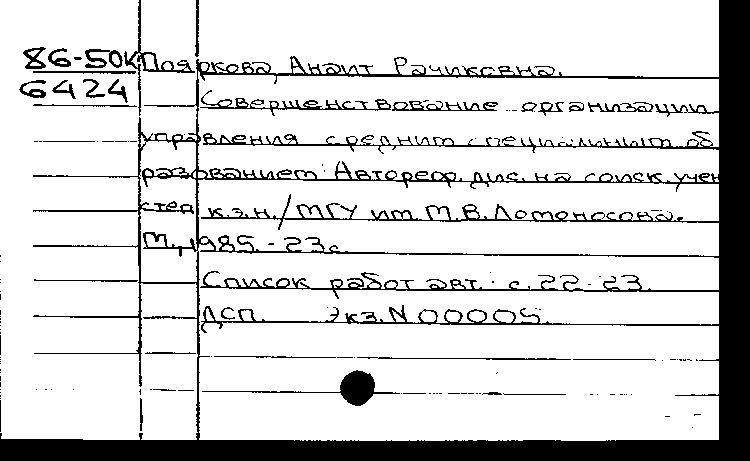 86-50к Пояркова, Анаит Рачиковна.
6424 Совершенствование организации
управления средним специальным об
разованием: Автореф. дис. на соиск. учен
степ к.э.н./МГУ им. М.В. Ломоносова.
М., 1985. - 23с.
Список работ авт.: с. 22-23.
ДСП. Экз. N 00005.